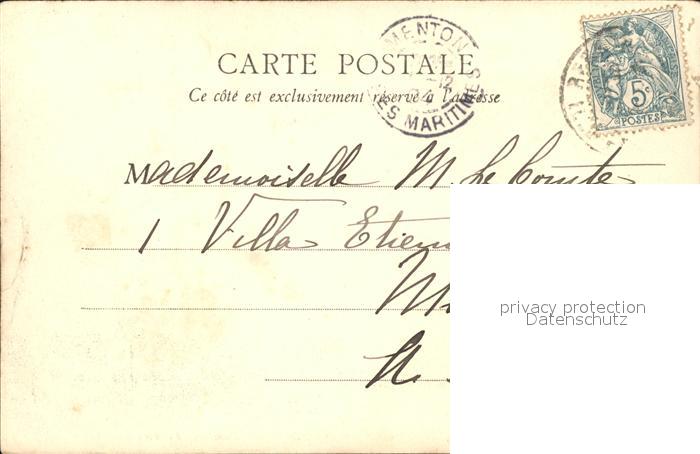 MENTON
CARTE POSTALE
Ce côté est exclusivement réservé à l'adresse
ES MARITIMES
5c
POSTES
Mademoiselle M. Le Comte
1 Villa Etien
M
A.
privacy protection
Datenschutz